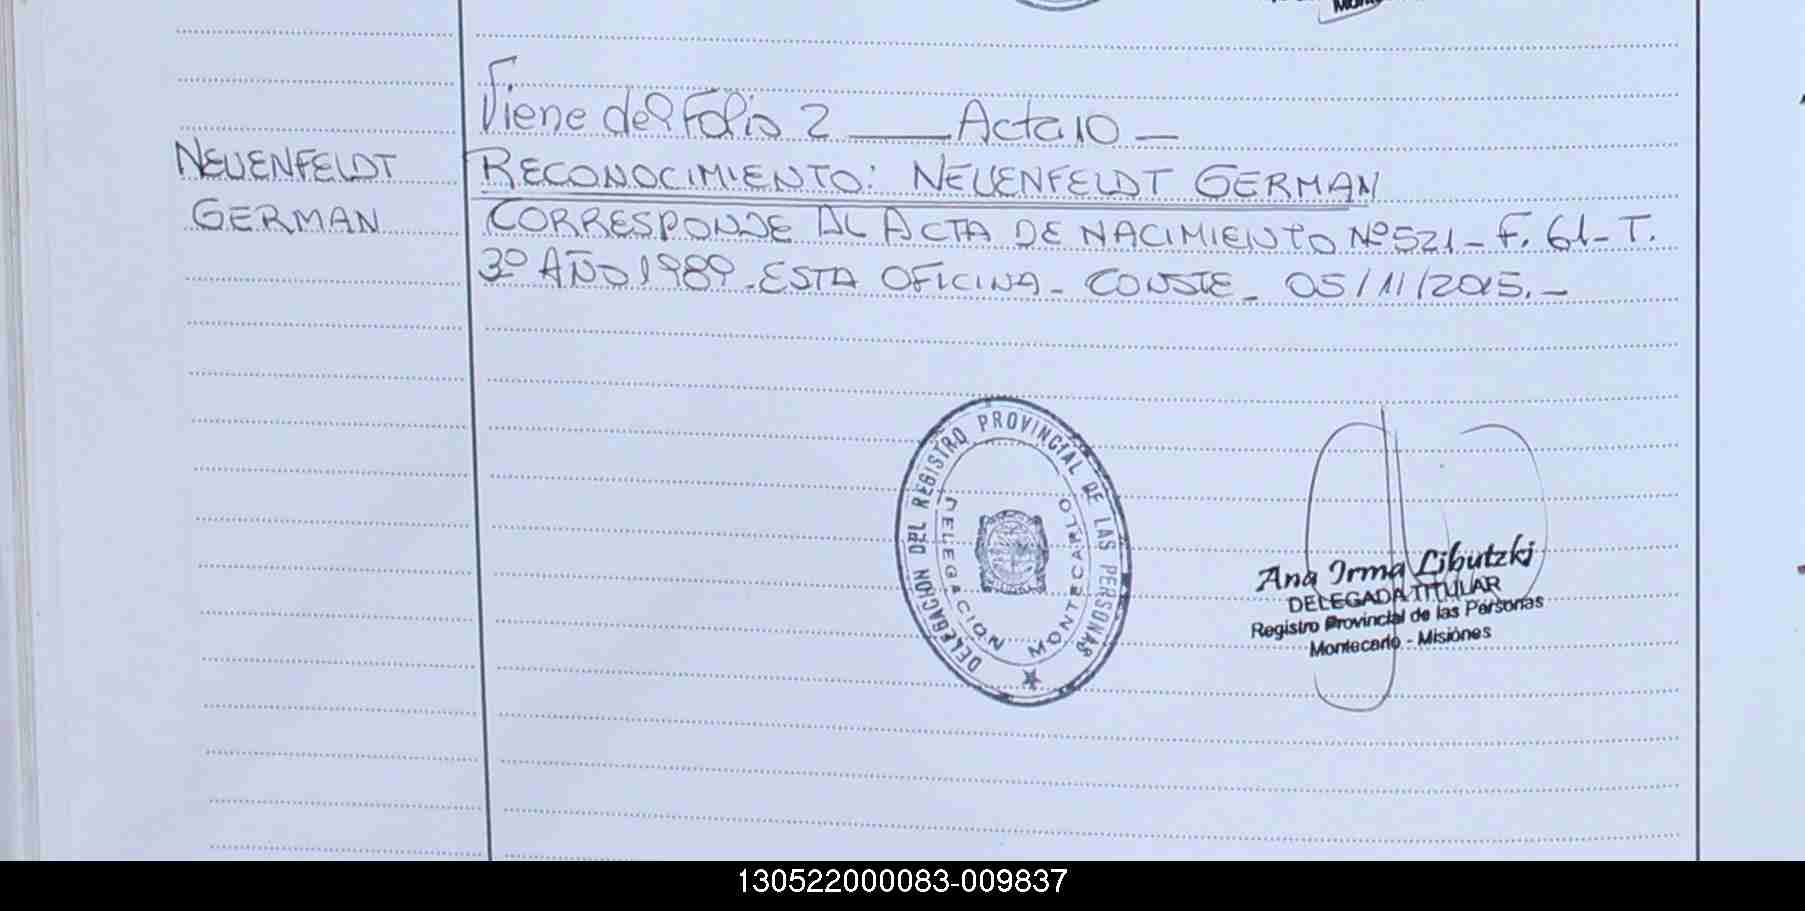 Viene del Folio 2 ___ Acta 10 —
NEUENFELDT
GERMAN
RECONOCIMIENTO: NEUENFELDT GERMAN
CORRESPONDE AL ACTA DE NACIMIENTO Nº 521 - F. 61 - T.
3º AÑO 1989 - ESTA OFICINA - CONSTE - 05/11/2015. -
DELEGACION DEL REGISTRO PROVINCIAL DE LAS PERSONAS
DELEGACION MONTECARLO
Ana Irma Libutzki
DELEGADA TITULAR
Registro Provincial de las Personas
Montecarlo - Misiones
130522000083-009837